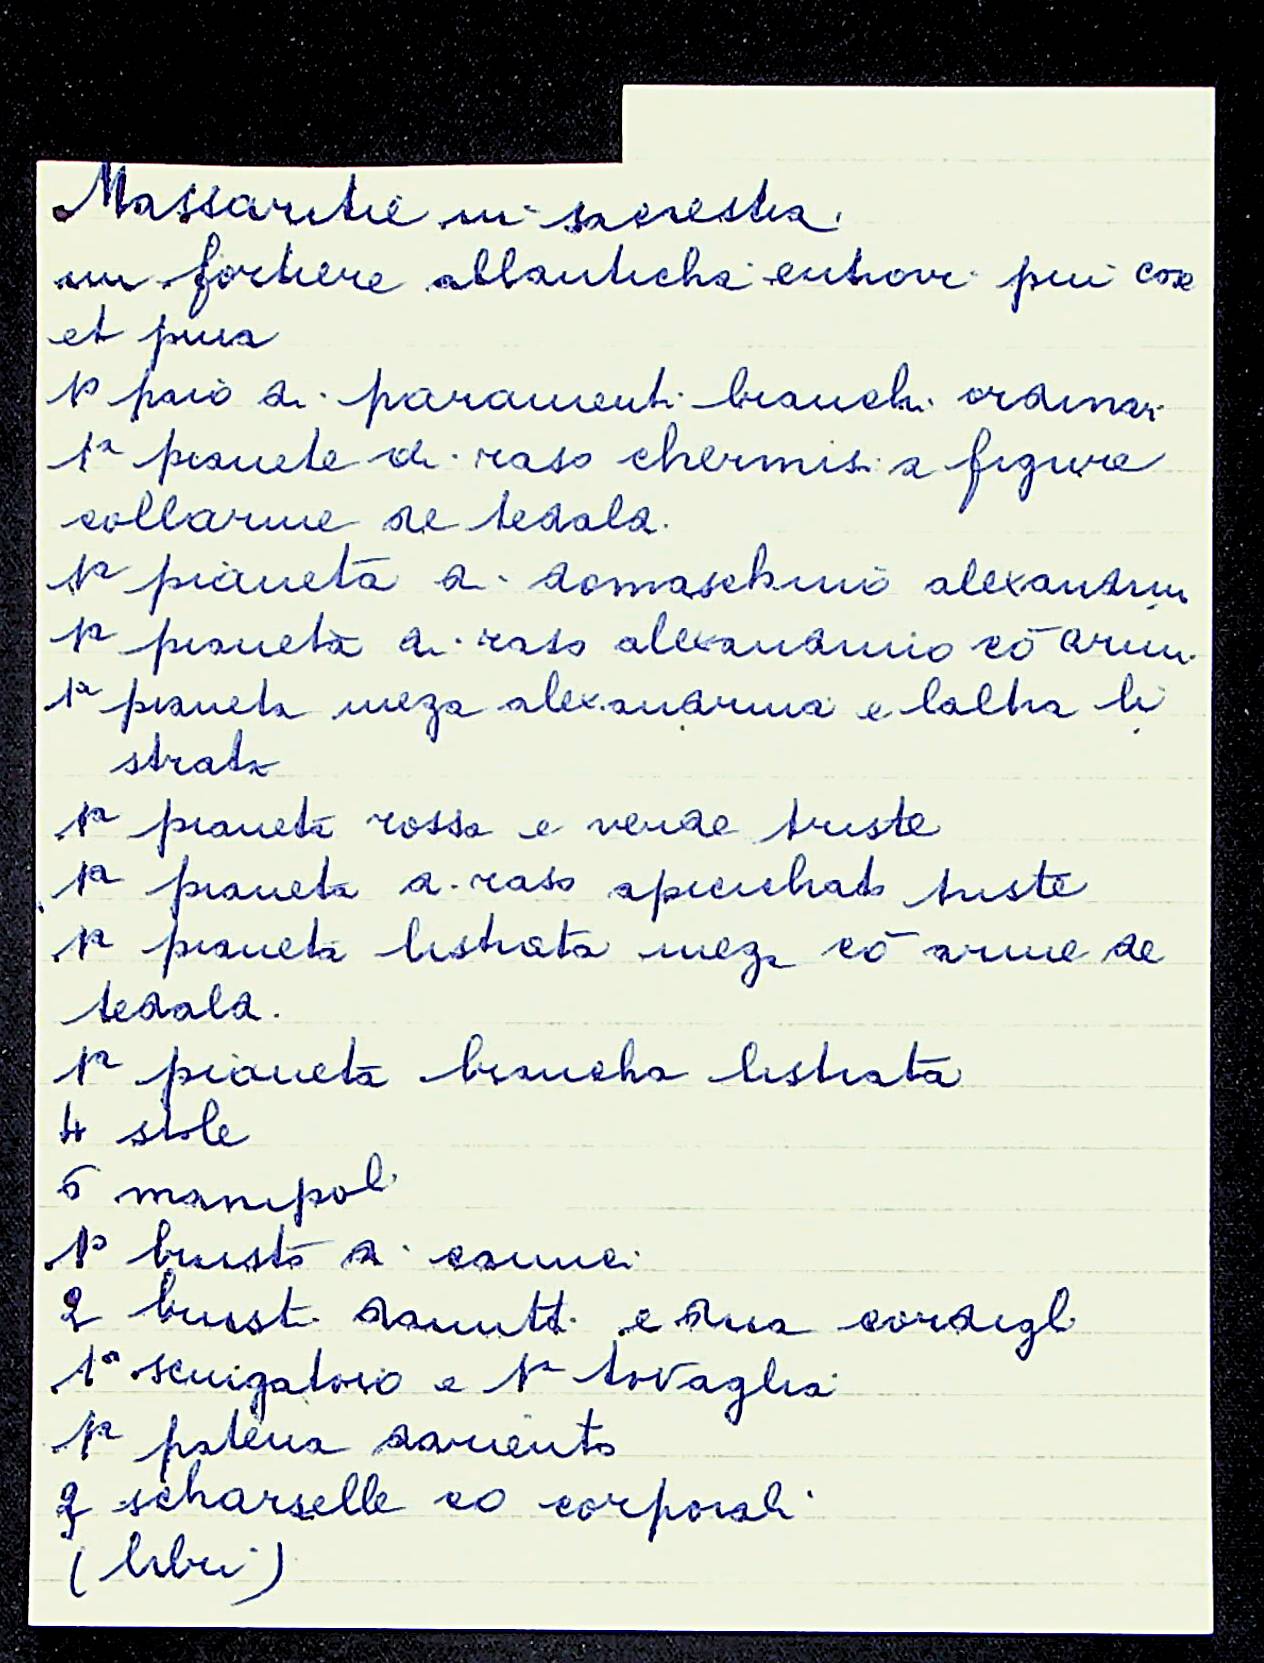 Massaritie in sacrestia.
un forziere allanticha entrovi piu cose
et pma
1º paio di paramenti bianchi ordinari
1ª pianete di raso chermisi a figure
collarme de tedaldi.
1ª pianeta di domaschino alexandrin
1ª pianeta di raso alexandrino cō armi
1ª pianeta meza alexandrina e laltra li
strata
1ª pianeta rossa e verde triste
1ª pianeta di raso apicichato triste
1ª pianeta listrata meza cō arme de
tedaldi.
1ª pianeta biancha listrata
4 stole
6 manipoli
1º busto di camici
2 busti damitti e dua cordigli
1º sciugatoio e 1ª tovaglia
1ª patena dariento
2 scharselle co corporali
(libri)